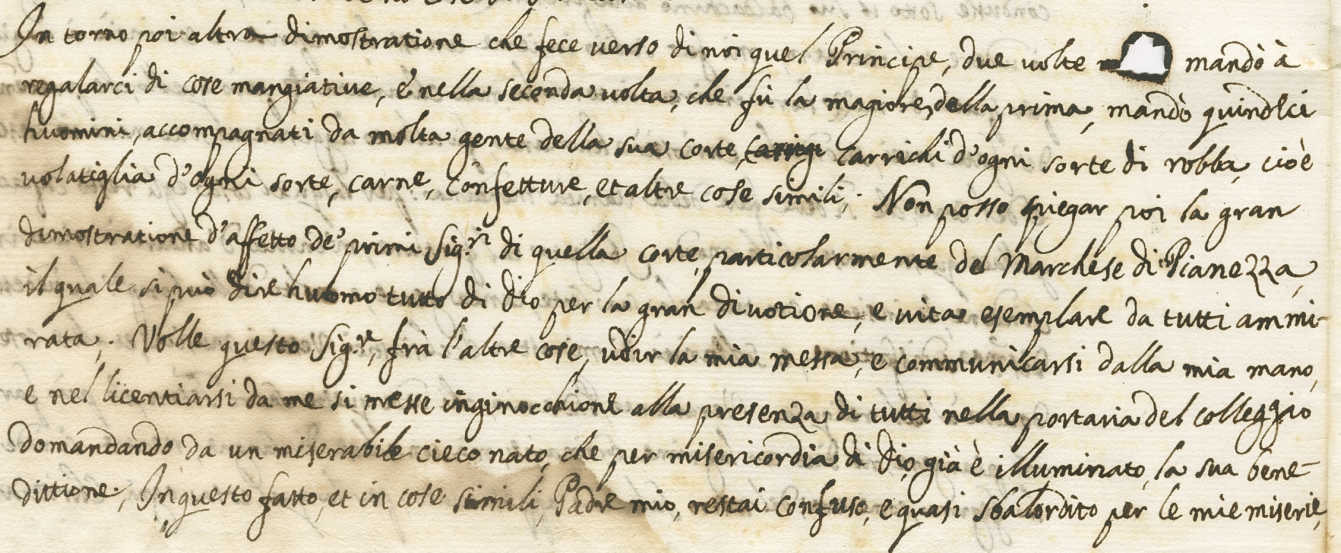 In torno poi altra dimostratione che fece verso di noi quel Principe, due volte mandò à
regalarci di cose mangiative, e nella seconda volta, che fù la magiore della prima, mandò quindeci
huomini accompagnati da molta gente della sua corte, carrichi d'ogni sorte di robba, cioè
volatiglia d'ogni sorte, carne, confetture, et altre cose simili; Non posso spiegar poi la gran
dimostratione d'affetto de' primi Sig.ri di quella corte, particolarmente del Marchese di Pianezza,
il quale si può dire huomo tutto di Dio per la gran divotione, e vita esemplare da tutti ammi-
rata; Volle questo Sig.re, frà l'altre cose, udir la mia messa, e communicarsi dalla mia mano,
e nel licentiarsi da me si messe inginocchione alla presenza di tutti nella portaria del colleggio
domandando da un miserabile cieco nato, che per misericordia di Dio già è illuminato, la sua bene-
dittione, In questo fatto, et in cose simili, Padre mio, restai confuso, e quasi sbalordito per le mie miserie,